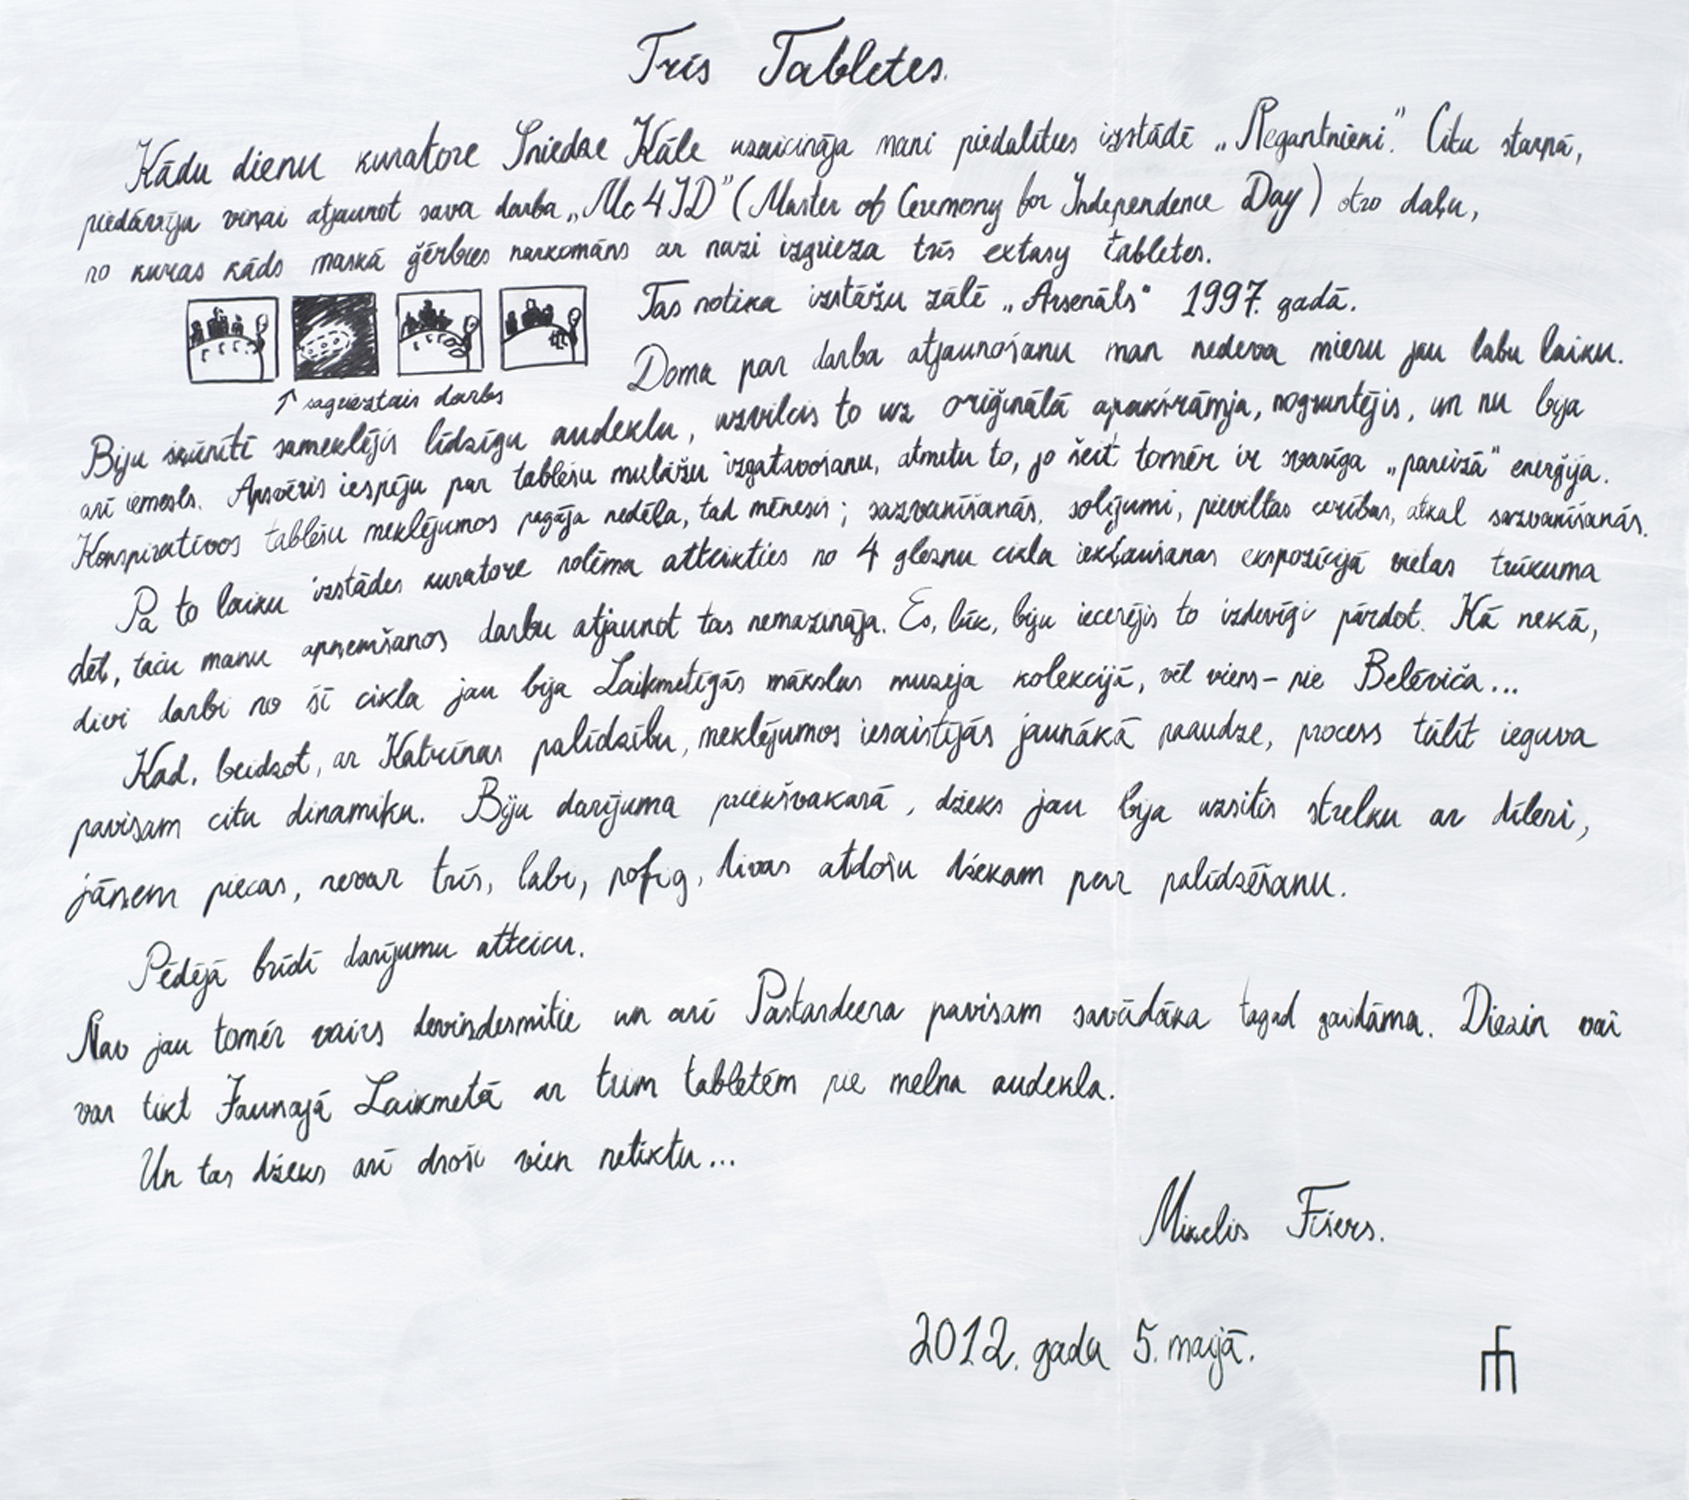 Trīs Tabletes.
Kādu dienu kuratore Sniedze Kāle uzaicināja mani piedalīties izstādē „Reņģantnieki”. Citu starpā,
piedāvāju viņai atjaunot sava darba „Mc4ID” (Master of Ceremony for Independence Day) otro daļu,
no kuras kāds maskā ģērbies narkomāns ar nazi izgrieza trīs extasy tabletes.
Tas notika izstāžu zālē „Arsenāls” 1997. gadā.
Doma par darba atjaunošanu man nedeva mieru jau labu laiku.
↑ sagrieztais darbs
Biju šķūnītī sameklējis līdzīgu audeklu, uzvilcis to uz oriģinālā apakšrāmja, nogruntējis, un nu bija
arī iemesls. Apsvēris iespēju par tablešu mulāžu izgatavošanu, atmetu to, jo šeit tomēr ir svarīga „pareizā” enerģija.
Konspiratīvos tablešu meklējumos pagāja nedēļa, tad mēnesis; sazvanīšanās, solījumi, pieviltas cerības, atkal sazvanīšanās.
Pa to laiku izstādes kuratore nolēma atteikties no 4 gleznu cikla iekļaušanas ekspozīcijā vietas trūkuma
dēļ, taču manu apņemšanos darbu atjaunot tas nemazināja. Es, lūk, biju iecerējis to izdevīgi pārdot. Kā nekā,
divi darbi no šī cikla jau bija Laikmetīgās mākslas muzeja kolekcijā, vēl viens – pie Belēviča...
Kad, beidzot, ar Katrīnas palīdzību, meklējumos iesaistījās jaunākā paaudze, process tūlīt ieguva
pavisam citu dinamiku. Biju darījuma priekšvakarā, džeks jau bija uzsitis strelku ar dīleri,
jāņem piecas, nevar trīs, labi, pofig, divas atdošu džekam par palīdzēšanu.
Pēdējā brīdī darījumu atteicu.
Nav jau tomēr vairs deviņdesmitie un arī Pastardiena pavisam savādāka tagad gaidāma. Diezin vai
var tikt Jaunajā Laikmetā ar trim tabletēm pie melna audekla.
Un tas džeks arī droši vien netiktu...
Miķelis Fišers.
2012. gada 5. maijā.